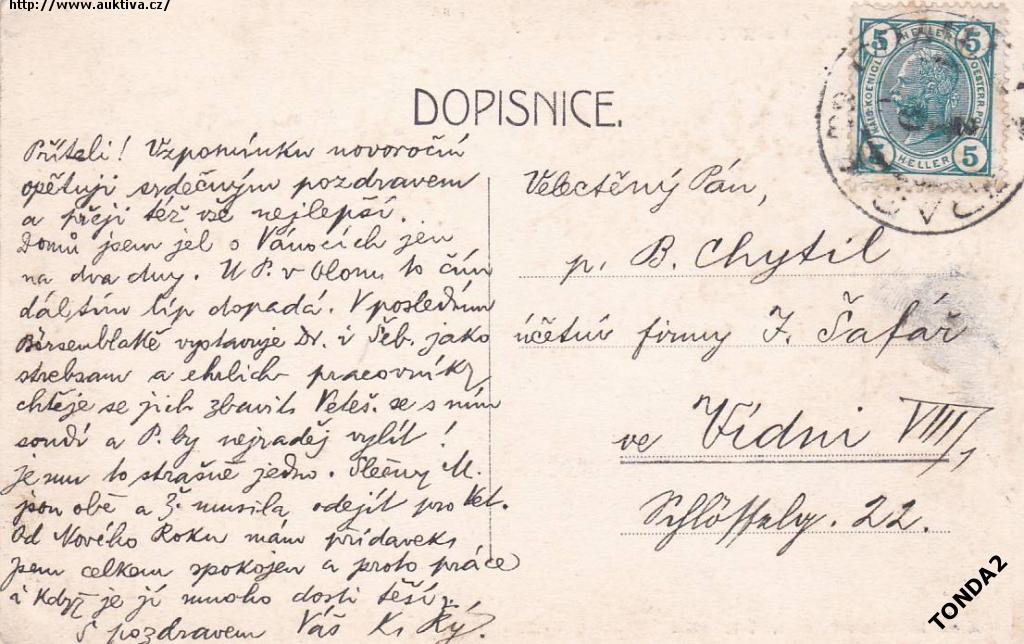 http://www.auktiva.cz/
DOPISNICE.
Příteli! Vzpomínku novoroční
opětuji srdečným pozdravem
a přeji též vše nejlepší.
Domů jsem jel o Vánocích jen
na dva dny. U P. v Olomu to čím
dál,tím líp dopadá. V posledním
vystavuje Dr. i Šeb. jako
strebsam a ehrlich pracovníky
chtěje se jich zbaviti. Veteš. se s ním
soudí a P. by nejraděj vylít!
je mu to strašně jedno. Slečny M.
jsou obě a Ž. musila odejít pro Vet.
Od Nového Roku mám přídavek,
jsem celkem spokojen a proto práce
i když je jí mnoho dosti těší.
S pozdravem Váš K. Ký.
Velectěný Pán,
p. B. Chytil
účetní firmy J. Šafář
ve Vídni VIII/1
Schlösselg. 22.
5 HELLER 5
5 HELLER 5
TONDA2